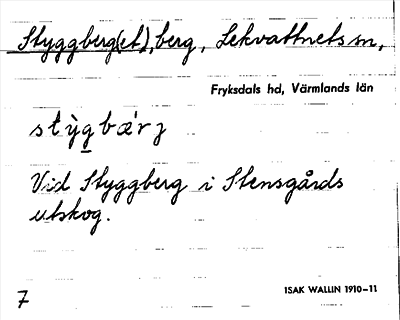 Styggberg(et), berg, Lekvattnets sn,
Fryksdals hd, Värmlands län
stỳ̠gbæ̀rj
Vid Styggberg i Stensgårds
utskog.
7
ISAK WALLIN 1910–11